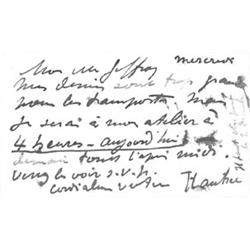 mercredi
Mon cher Geffroy
mes dessins sont trop grands
pour les transporter mais
je serai à mon atelier à
4 heures - aujourd'hui
demain toute l'après midi.
venez le voir s.v.p.
cordialement votre
HLautrec